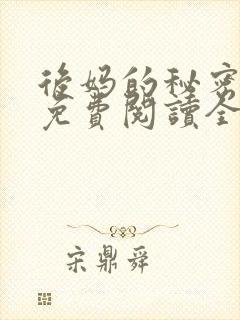 後妈的秘密
免費閱讀全
宋鼎舜